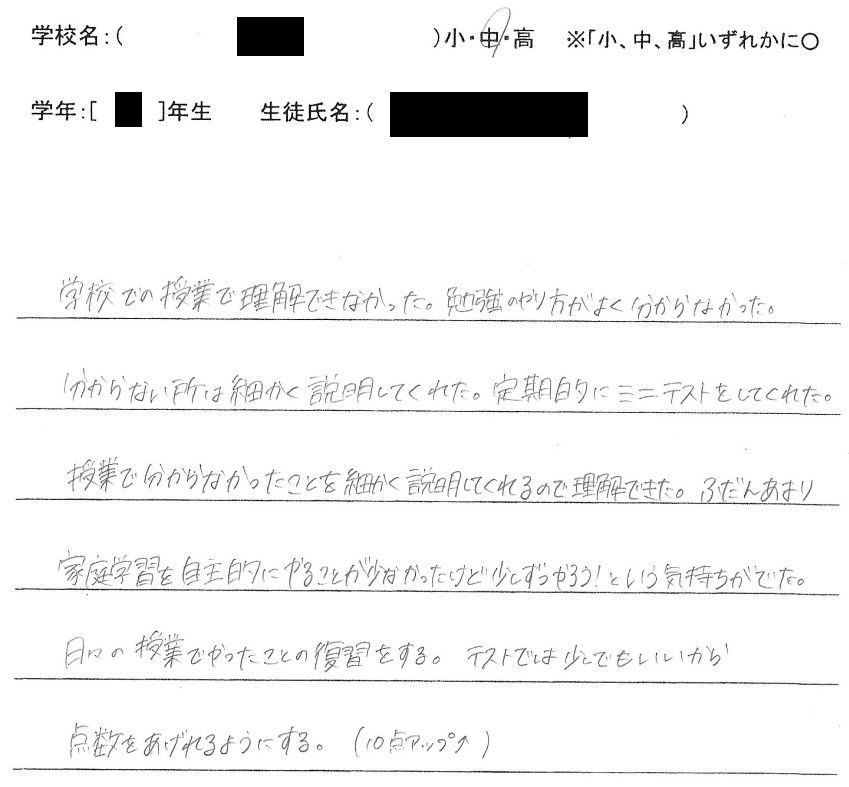 学校名:( )小・中・高 ※「小、中、高」いずれかに○
学年:[ ]年生 生徒氏名:( )
学校での授業で理解できなかった。勉強のやり方がよく分からなかった。
分からない所は細かく説明してくれた。定期的にミニテストをしてくれた。
授業で分からなかったことを細かく説明してくれるので理解できた。ふだんあまり
家庭学習を自主的にやることが少なかったけど少しずつやろう!という気持ちがでた。
日々の授業でやったことの復習をする。テストでは少しでもいいから
点数をあげれるようにする。(10点アップ↑)